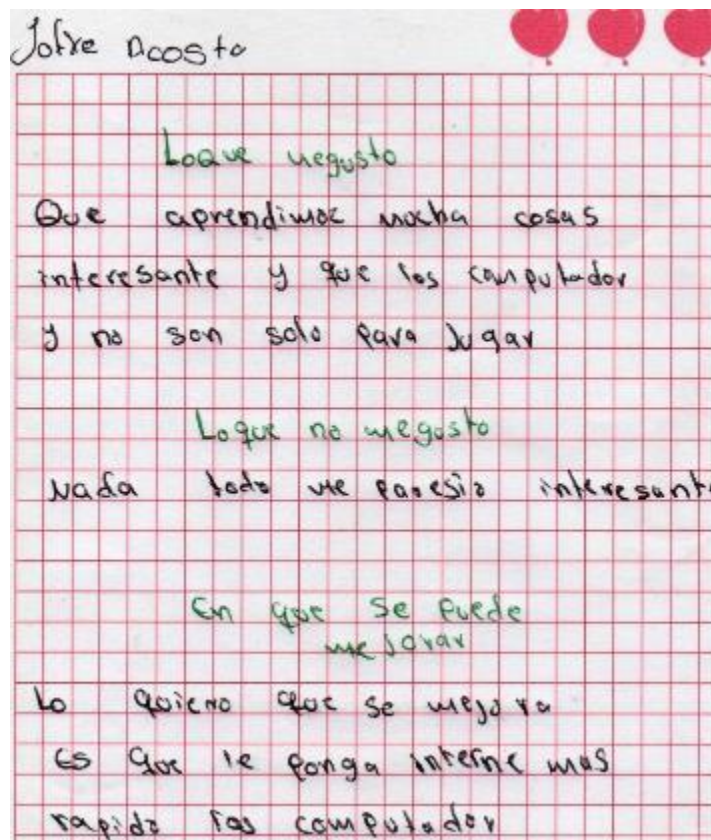 Jofre Acosta
Loque megusto
Que aprendimos mucha cosas
interesante y que los computador
y no son solo para Jugar
Loque no megusto
Nada todo me paresio interesant
En que se puede
mejorar
Lo quiero que se mejora
Es que le ponga interne mas
rapido las computador